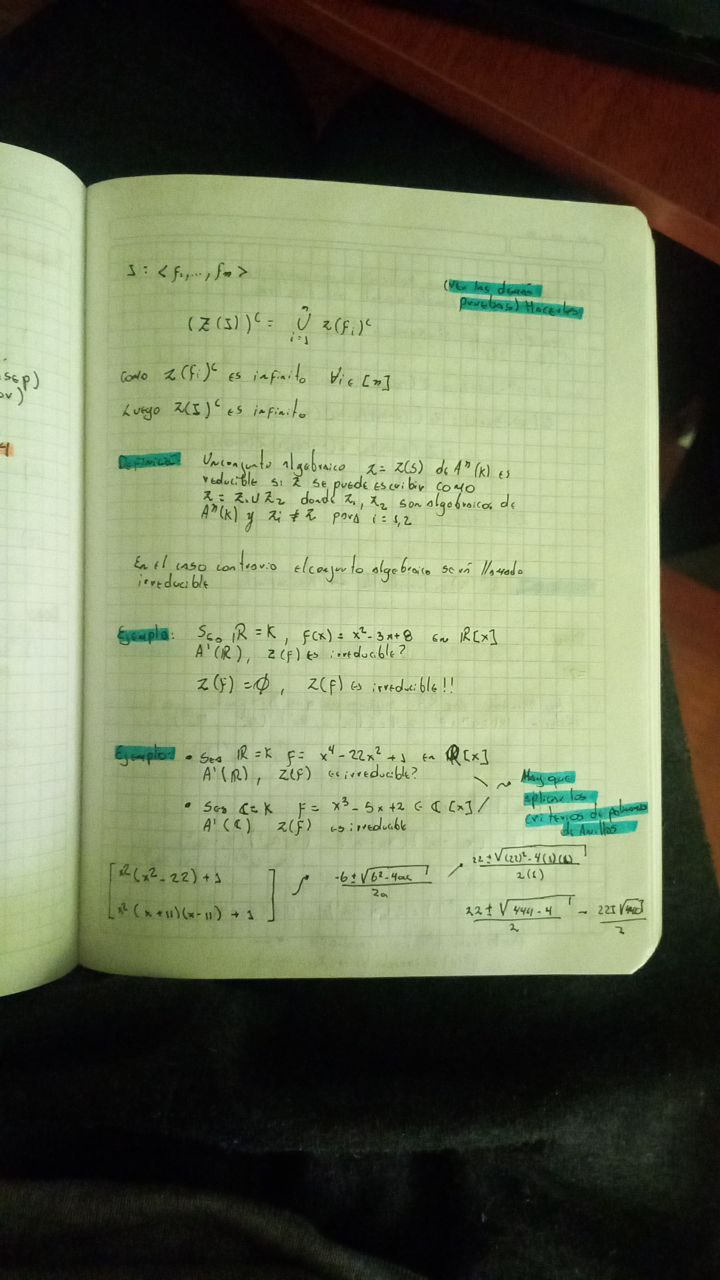 sep)
ov)
I: <f₁,..., fₙ>
(Ver las demás
pruebas) Hacerlas
(Z(I))ᶜ = ⋃ⁿᵢ₌₁ Z(fᵢ)ᶜ
Como Z(fᵢ)ᶜ es infinito ∀i∈[n]
Luego Z(I)ᶜ es infinito
Definición Un conjunto algebraico Z = Z(S) de Aⁿ(K) es
reducible si Z se puede escribir como
Z = Z₁ ∪ Z₂ donde Z₁, Z₂ son algebraicos de
Aⁿ(K) y Zᵢ ≠ Z para i = 1,2
En el caso contrario el conjunto algebraico será llamado
irreducible
Ejemplo: Sea ℝ = K, f(x) = x² - 3x + 8 en ℝ[x]
A¹(ℝ), Z(f) es irreducible?
Z(f) = ∅, Z(f) es irreducible!!
Ejemplo: • Sea ℝ = K f = x⁴ - 22x² + 1 en ℝ[x]
A¹(ℝ), Z(f) es irreducible?
Hay que
aplicar los
criterios de polinomios
de Anillos
• Sea ℂ = K f = x³ - 5x + 2 ∈ ℂ[x]
A¹(ℂ) Z(f) es irreducible
x²(x² - 22) + 1
x²(x + 11)(x - 11) + 1
-b ± √(b² - 4ac) / 2a
22 ± √((22)² - 4(1)(1)) / 2(1)
22 ± √(444 - 4) / 2 - 22 ± √440 / 2